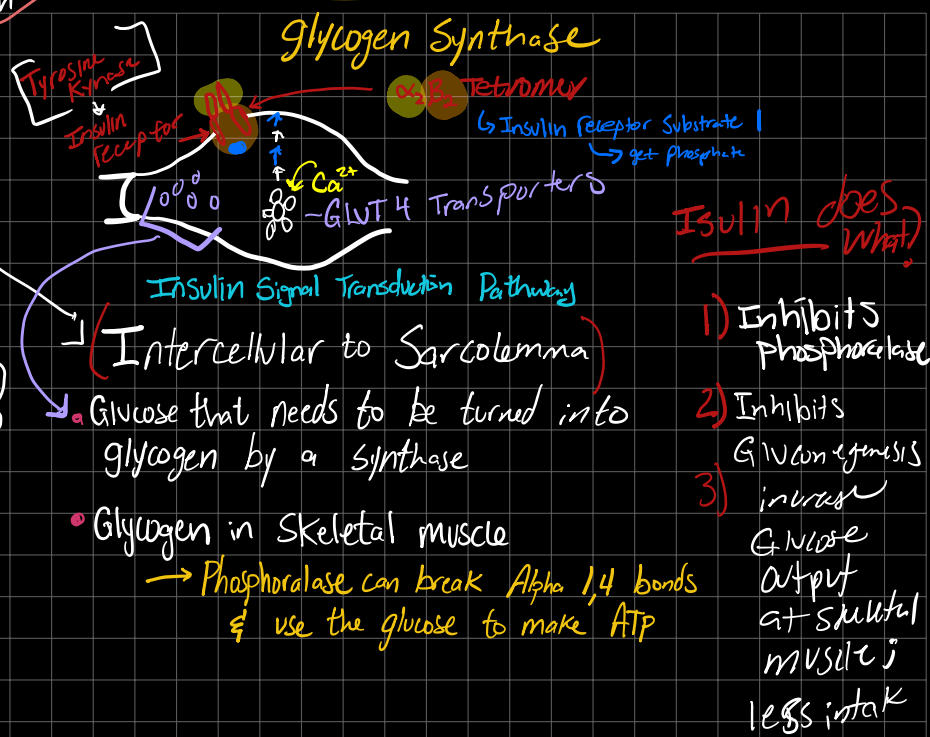 Glycogen Synthase
Tyrosine
Kynase
Insulin
receptor
α2 β2 Tetromer
↳ Insulin receptor Substrate 1
↳ get phosphate
Ca2+
~GLUT 4 Transporters
Insulin Signal Transduction Pathway
(Intercellular to Sarcolemma)
• Glucose that needs to be turned into
glycogen by a synthase
• Glycogen in skeletal muscle
→ Phosphoralase can break Alpha 1,4 bonds
& use the glucose to make ATP
Isulin does
What?
1) Inhibits
phosphorelase
2) Inhibits
Gluconegenisis
3) increase
Glucose
output
at skeletal
muscle;
less intak